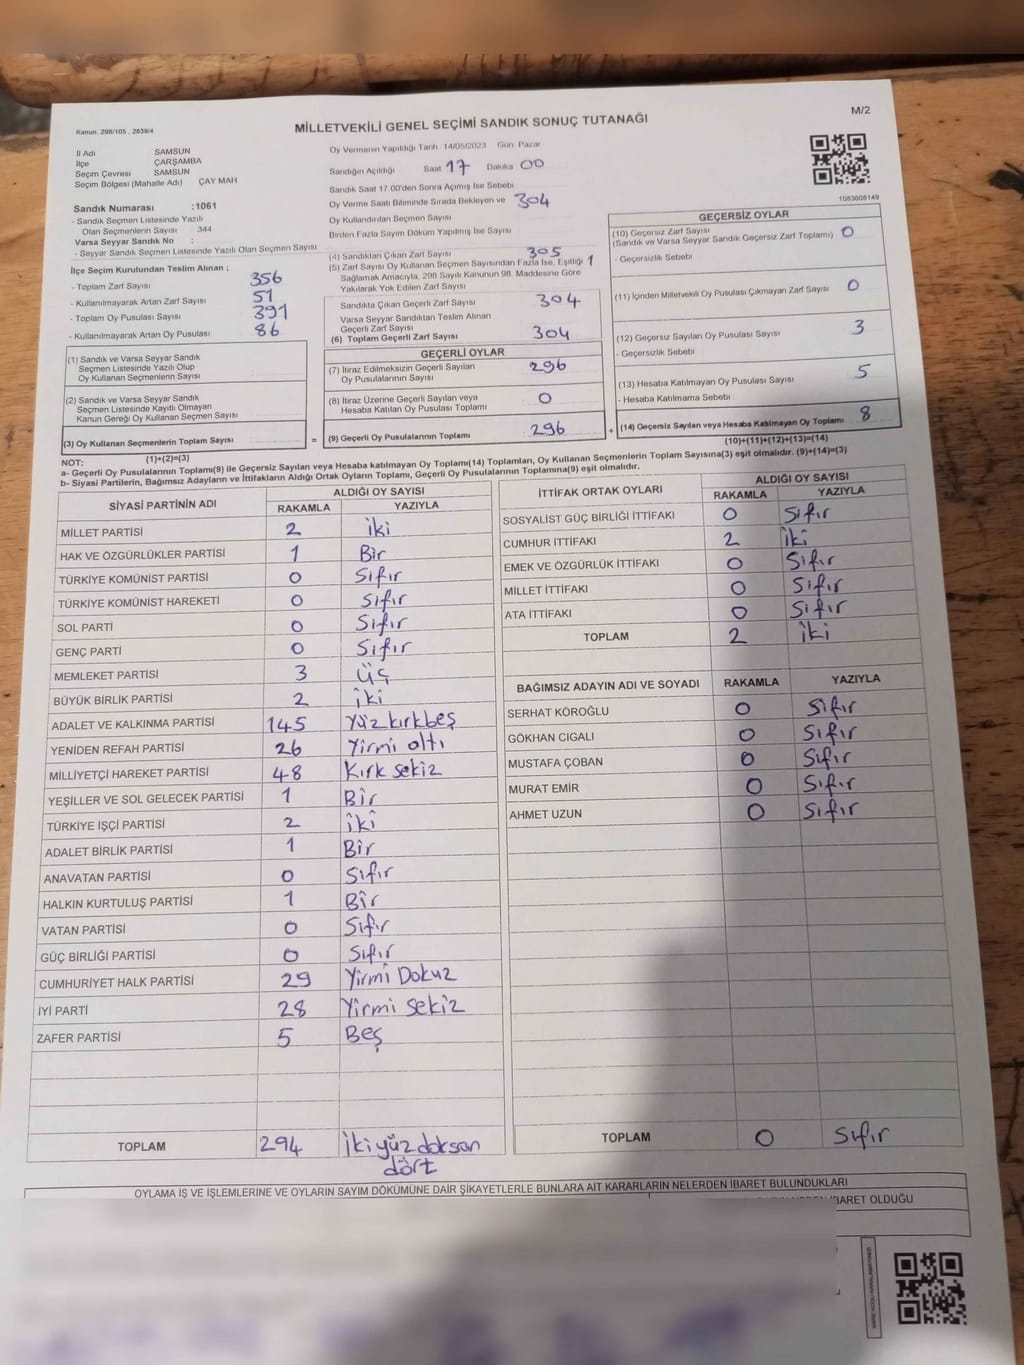 M/2
Kanun. 298/105 , 2839/4
MİLLETVEKİLİ GENEL SEÇİMİ SANDIK SONUÇ TUTANAĞI
İl Adı SAMSUN
İlçe ÇARŞAMBA
Seçim Çevresi SAMSUN
Seçim Bölgesi (Mahalle Adı) ÇAY MAH
Sandık Numarası :1061
- Sandık Seçmen Listesinde Yazılı
Olan Seçmenlerin Sayısı 344
Varsa Seyyar Sandık No :
- Seyyar Sandık Seçmen Listesinde Yazılı Olan Seçmen Sayısı
İlçe Seçim Kurulundan Teslim Alınan ;
- Toplam Zarf Sayısı 356
- Kullanılmayarak Artan Zarf Sayısı 51
- Toplam Oy Pusulası Sayısı 391
- Kullanılmayarak Artan Oy Pusulası 86
(1) Sandık ve Varsa Seyyar Sandık
Seçmen Listesinde Yazılı Olup
Oy Kullanan Seçmenlerin Sayısı
(2) Sandık ve Varsa Seyyar Sandık
Seçmen Listesinde Kayıtlı Olmayan
Kanun Gereği Oy Kullanan Seçmen Sayısı
(3) Oy Kullanan Seçmenlerin Toplam Sayısı =
(1)+(2)=(3)
Oy Vermenin Yapıldığı Tarih 14/05/2023 Gün Pazar
Sandığın Açıldığı Saat 17 Dakika 00
Sandık Saat 17.00'den Sonra Açmış İse Sebebi
Oy Verme Saati Bitiminde Sırada Bekleyen ve 304
Oy Kullandırılan Seçmen Sayısı
Birden Fazla Sayım Döküm Yapılmış İse Sayısı
(4) Sandıktan Çıkan Zarf Sayısı 305
(5) Zarf Sayısı Oy Kullanan Seçmen Sayısından Fazla İse, Eşitliği 1
Sağlamak Amacıyla, 298 Sayılı Kanunun 98. Maddesine Göre
Yakılarak Yok Edilen Zarf Sayısı
Sandıkta Çıkan Geçerli Zarf Sayısı 304
Varsa Seyyar Sandıktan Teslim Alınan
Geçerli Zarf Sayısı
(6) Toplam Geçerli Zarf Sayısı 304
GEÇERLİ OYLAR
(7) İtiraz Edilmeksizin Geçerli Sayılan 296
Oy Pusulalarının Sayısı
(8) İtiraz Üzerine Geçerli Sayılan veya 0
Hesaba Katılan Oy Pusulası Toplamı
(9) Geçerli Oy Pusulalarının Toplamı 296 +
1083608149
GEÇERSİZ OYLAR
(10) Geçersiz Zarf Sayısı 0
(Sandık ve Varsa Seyyar Sandık Geçersiz Zarf Toplamı)
- Geçersizlik Sebebi
(11) İçinden Milletvekili Oy Pusulası Çıkmayan Zarf Sayısı 0
(12) Geçersiz Sayılan Oy Pusulası Sayısı 3
- Geçersizlik Sebebi
(13) Hesaba Katılmayan Oy Pusulası Sayısı 5
- Hesaba Katılmama Sebebi
(14) Geçersiz Sayılan veya Hesaba Katılmayan Oy Toplamı 8
(10)+(11)+(12)+(13)=(14)
NOT:
a- Geçerli Oy Pusulalarının Toplamı(9) ile Geçersiz Sayılan veya Hesaba katılmayan Oy Toplamı(14) Toplamları, Oy Kullanan Seçmenlerin Toplam Sayısına(3) eşit olmalıdır. (9)+(14)=(3)
b- Siyasi Partilerin, Bağımsız Adayların ve İttifakların Aldığı Ortak Oyların Toplamı, Geçerli Oy Pusulalarının Toplamına(9) eşit olmalıdır.
SİYASİ PARTİNİN ADI ALDIĞI OY SAYISI
RAKAMLA YAZIYLA
MİLLET PARTİSİ 2 iki
HAK VE ÖZGÜRLÜKLER PARTİSİ 1 Bir
TÜRKİYE KOMÜNİST PARTİSİ 0 Sıfır
TÜRKİYE KOMÜNİST HAREKETİ 0 Sıfır
SOL PARTİ 0 Sıfır
GENÇ PARTİ 0 Sıfır
MEMLEKET PARTİSİ 3 Üç
BÜYÜK BİRLİK PARTİSİ 2 iki
ADALET VE KALKINMA PARTİSİ 145 Yüz kırkbeş
YENİDEN REFAH PARTİSİ 26 Yirmi altı
MİLLİYETÇİ HAREKET PARTİSİ 48 Kırk sekiz
YEŞİLLER VE SOL GELECEK PARTİSİ 1 Bir
TÜRKİYE İŞÇİ PARTİSİ 2 iki
ADALET BİRLİK PARTİSİ 1 Bir
ANAVATAN PARTİSİ 0 Sıfır
HALKIN KURTULUŞ PARTİSİ 1 Bir
VATAN PARTİSİ 0 Sıfır
GÜÇ BİRLİĞİ PARTİSİ 0 Sıfır
CUMHURİYET HALK PARTİSİ 29 Yirmi Dokuz
İYİ PARTİ 28 Yirmi sekiz
ZAFER PARTİSİ 5 Beş
TOPLAM 294 İkiyüz doksan
dört
İTTİFAK ORTAK OYLARI ALDIĞI OY SAYISI
RAKAMLA YAZIYLA
SOSYALİST GÜÇ BİRLİĞİ İTTİFAKI 0 Sıfır
CUMHUR İTTİFAKI 2 iki
EMEK VE ÖZGÜRLÜK İTTİFAKI 0 Sıfır
MİLLET İTTİFAKI 0 Sıfır
ATA İTTİFAKI 0 Sıfır
TOPLAM 2 iki
BAĞIMSIZ ADAYIN ADI VE SOYADI RAKAMLA YAZIYLA
SERHAT KÖROĞLU 0 Sıfır
GÖKHAN CIGALI 0 Sıfır
MUSTAFA ÇOBAN 0 Sıfır
MURAT EMİR 0 Sıfır
AHMET UZUN 0 Sıfır
TOPLAM 0 Sıfır
OYLAMA İŞ VE İŞLEMLERİNE VE OYLARIN SAYIM DÖKÜMÜNE DAİR ŞİKAYETLERLE BUNLARA AİT KARARLARIN NELERDEN İBARET BULUNDUKLARI
NEDEN İBARET OLDUĞU